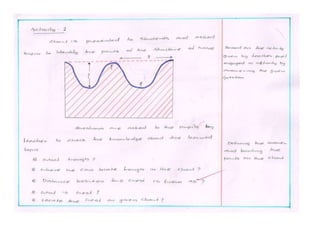 Activity : 2
Chart is presented to students and asked
them to identify the parts of the structure of wave
3
1
2
Questions are asked to the pupils by
teacher to check the knowledge about the learned
topic
what trough ?
Where we can locate trough in the chart ?
Distance between two crest is known as ?
what is crest ?
Locate the crest on given chart ?
Based on the activity
given by teacher pupil
engaged in activity by
answering the given
question
Defining the answer
and locating the
parts on the chart